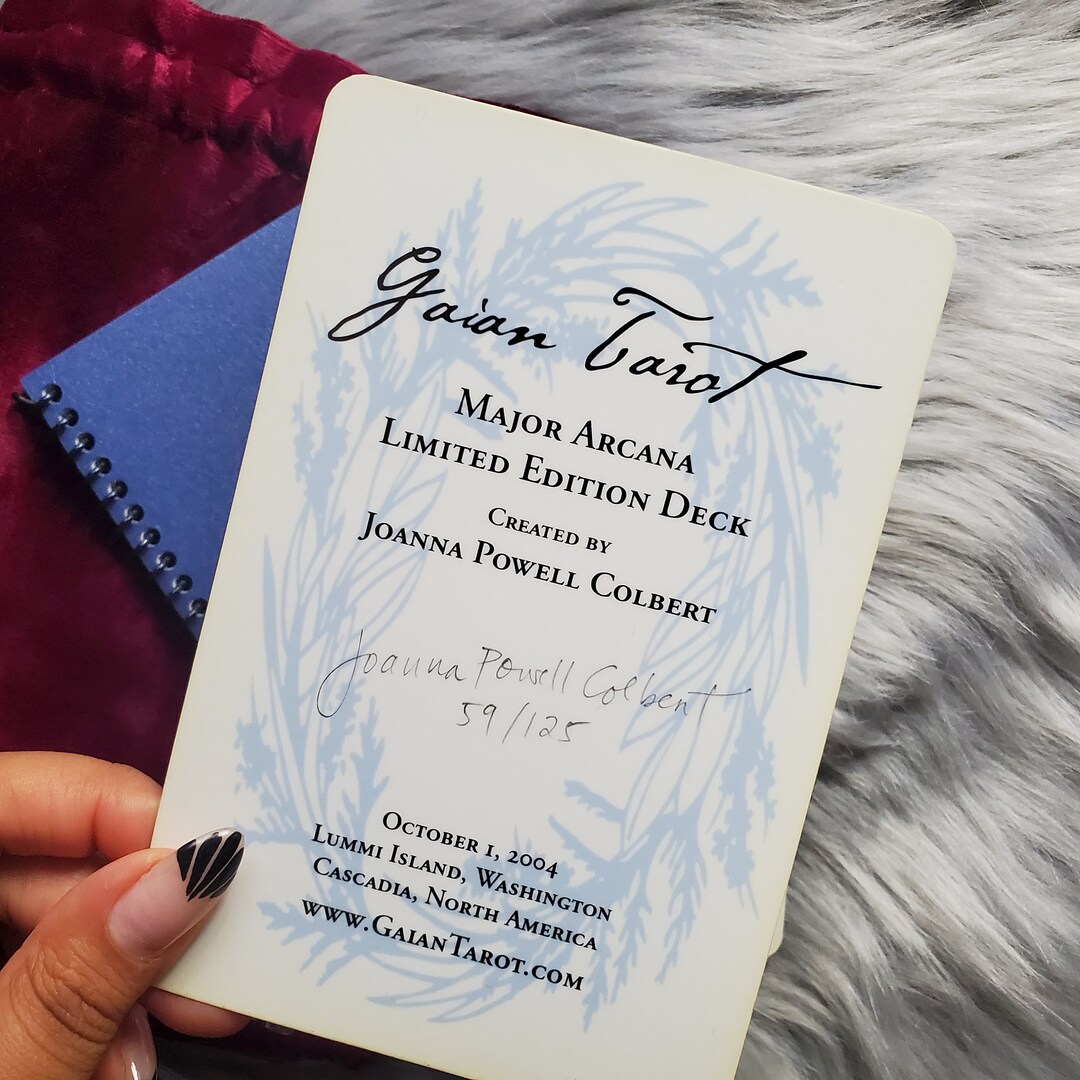 Gaian Tarot
Major Arcana
Limited Edition Deck
Created by
Joanna Powell Colbert
Joanna Powell Colbert
59/125
October 1, 2004
Lummi Island, Washington
Cascadia, North America
www.GaianTarot.com